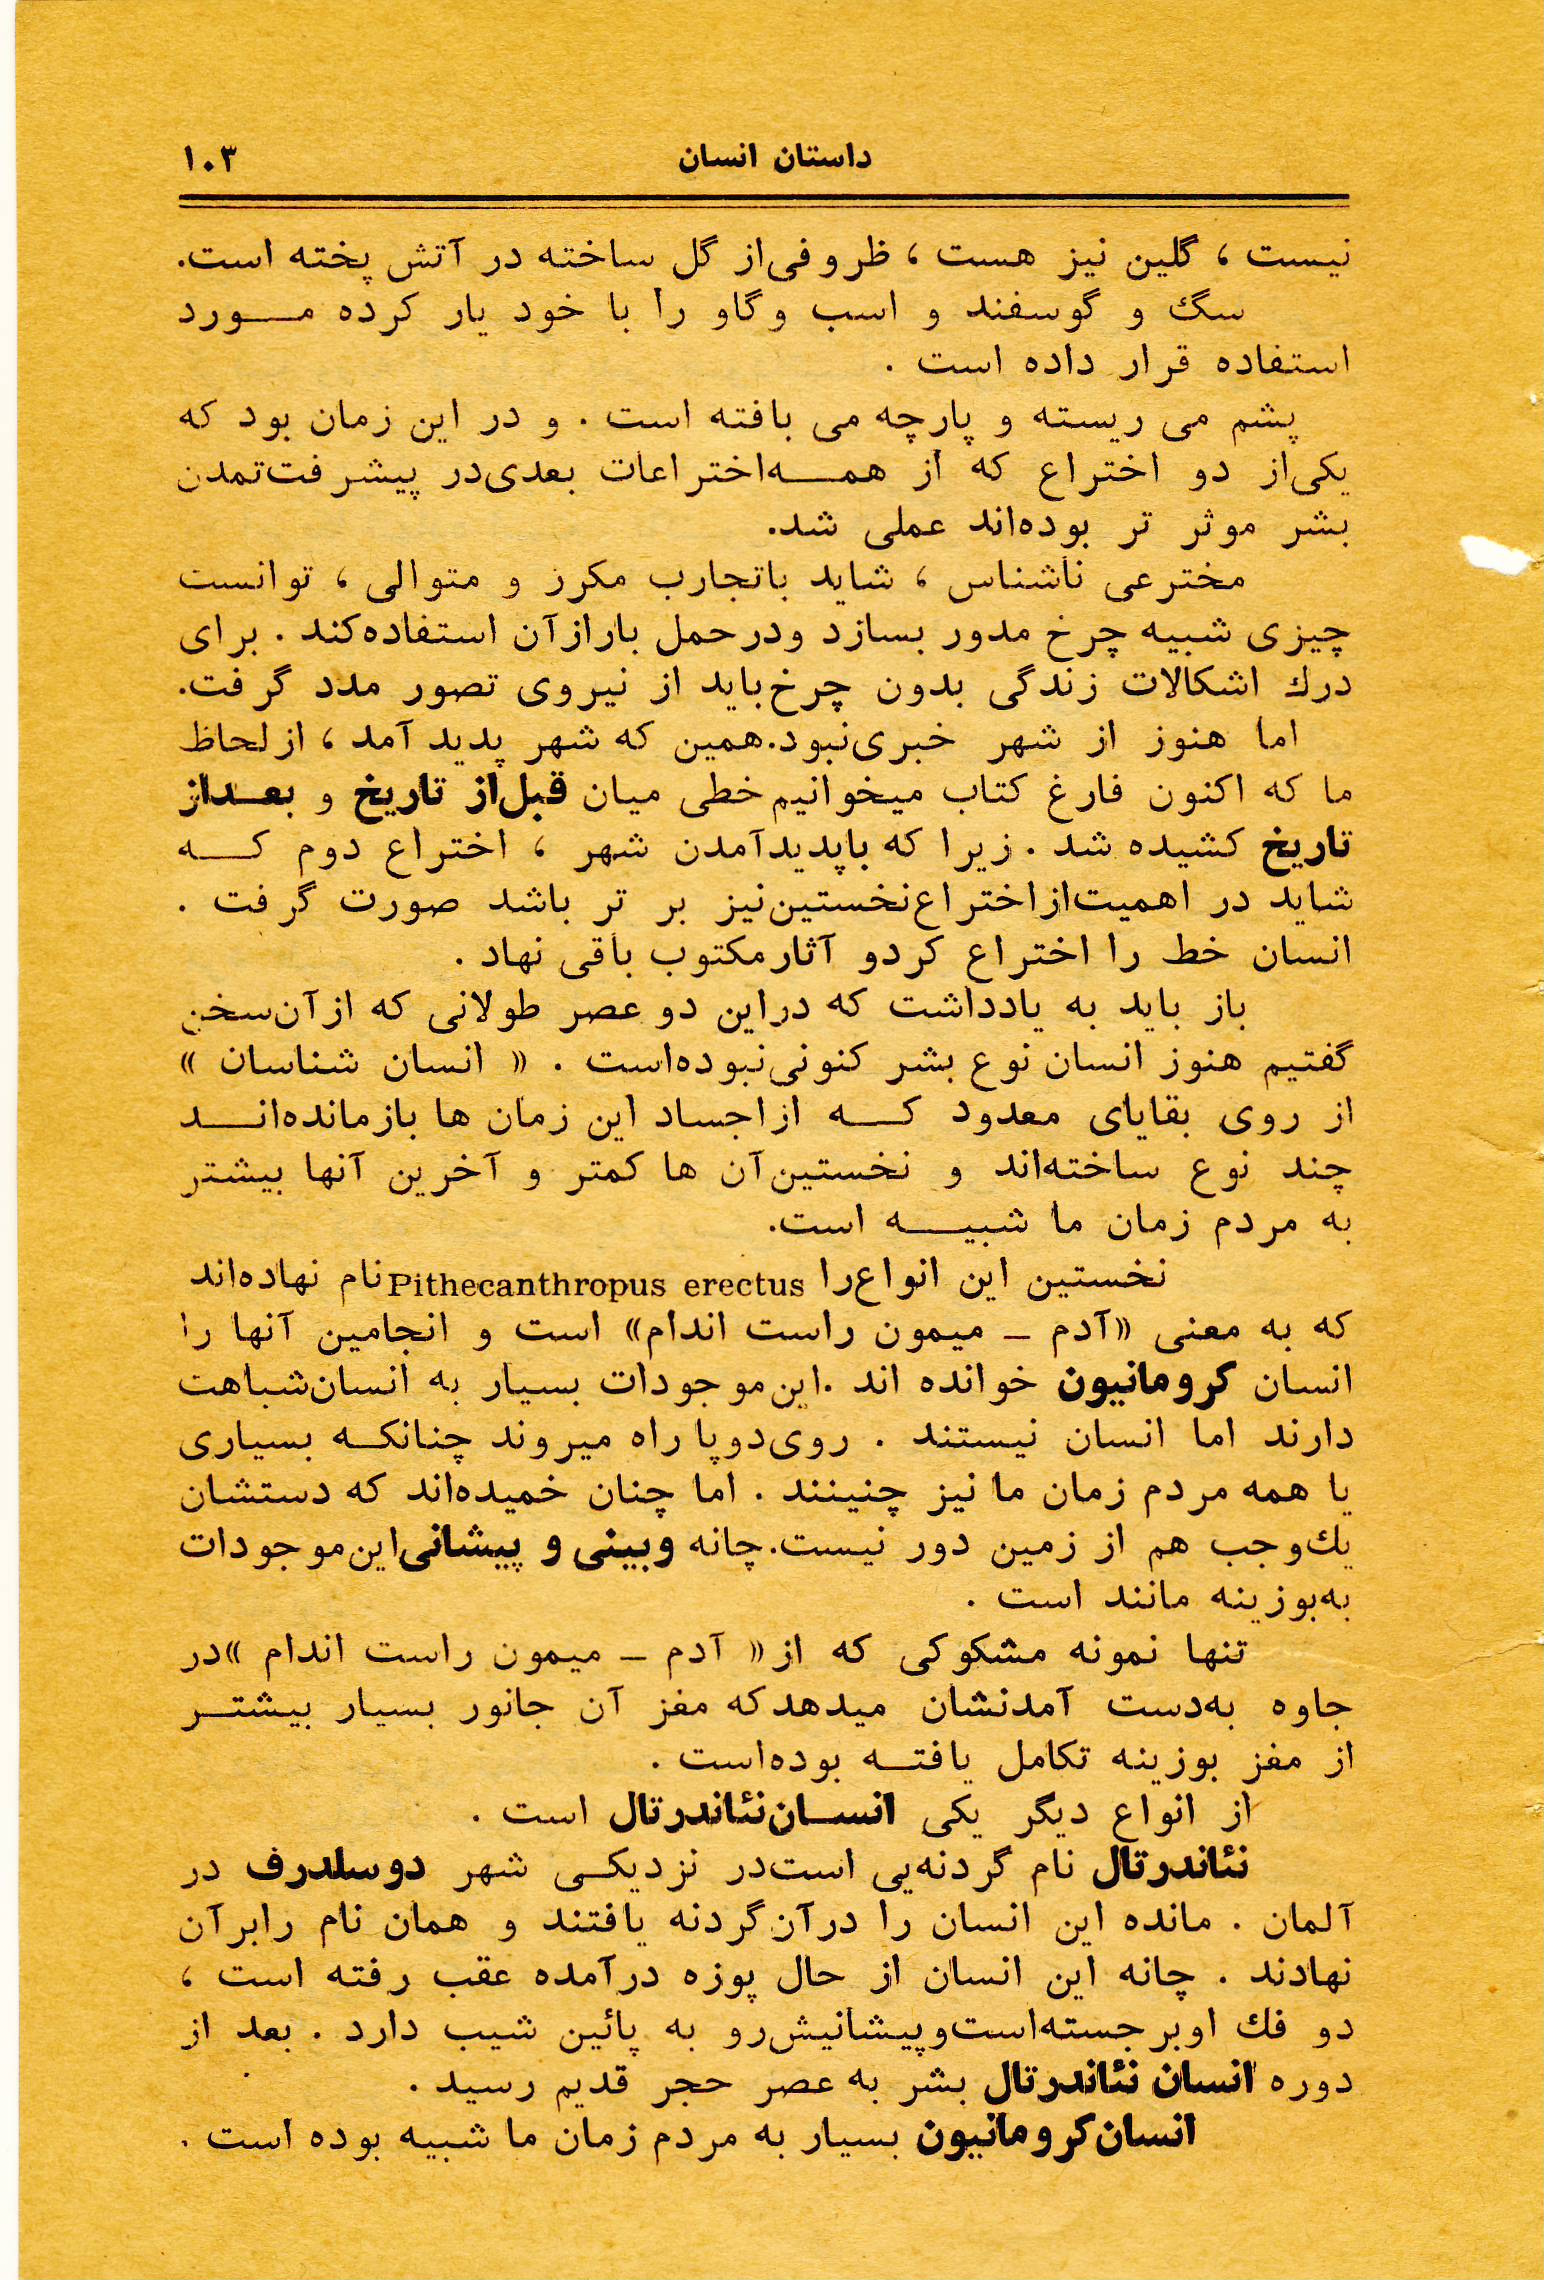 داستان انسان ۱۰۳
نیست ، گلین نیز هست ، ظروفی‌از گل ساخته در آتش پخته است.
سگ و گوسفند و اسب وگاو را با خود یار کرده مورد
استفاده قرار داده است .
پشم می ریسته و پارچه می بافته است . و در این زمان بود که
یکی‌از دو اختراع که از همه‌اختراعات بعدی‌در پیشرفت‌تمدن
بشر موثر تر بوده‌اند عملی شد.
مخترعی ناشناس ، شاید باتجارب مکرر و متوالی ، توانست
چیزی شبیه چرخ مدور بسازد ودرحمل بارازآن استفاده‌کند . برای
درك اشکالات زندگی بدون چرخ‌باید از نیروی تصور مدد گرفت.
اما هنوز از شهر خبری‌نبود.همین که شهر پدید آمد ، از لحاظ
ما که اکنون فارغ کتاب میخوانیم خطی میان قبل‌از تاریخ و بعداز
تاریخ کشیده شد . زیرا که باپدیدآمدن شهر ، اختراع دوم که
شاید در اهمیت‌ازاختراع‌نخستین‌نیز بر تر باشد صورت گرفت .
انسان خط را اختراع کردو آثارمکتوب باقی نهاد .
باز باید به یادداشت که دراین دو عصر طولانی که ازآن‌سخن
گفتیم هنوز انسان نوع بشر کنونی‌نبوده‌است . « انسان شناسان »
از روی بقایای معدود که ازاجساد این زمان ها بازمانده‌اند
چند نوع ساخته‌اند و نخستین‌آن ها کمتر و آخرین آنها بیشتر
به مردم زمان ما شبیه است.
نخستین این انواع‌را Pithecanthropus erectus نام نهاده‌اند
که به معنی «آدم ـ میمون راست اندام» است و انجامین آنها را
انسان کرومانیون خوانده اند .این‌موجودات بسیار به انسان‌شباهت
دارند اما انسان نیستند . روی‌دوپا راه میروند چنانکه بسیاری
یا همه مردم زمان ما نیز چنینند . اما چنان خمیده‌اند که دستشان
یك‌وجب هم از زمین دور نیست.چانه وبینی و پیشانی‌این‌موجودات
به‌بوزینه مانند است .
تنها نمونه مشکوکی که از« آدم ـ میمون راست اندام »در
جاوه به‌دست آمدنشان میدهدکه مغز آن جانور بسیار بیشتر
از مغز بوزینه تکامل یافته بوده‌است .
از انواع دیگر یکی انسان‌نئاندرتال است .
نئاندرتال نام گردنه‌یی است‌در نزدیکی شهر دوسلدرف در
آلمان . مانده این انسان را درآن‌گردنه یافتند و همان نام رابرآن
نهادند . چانه این انسان از حال پوزه درآمده عقب رفته است ،
دو فك اوبرجسته‌است‌وپیشانیش‌رو به پائین شیب دارد . بعد از
دوره انسان نئاندرتال بشر به عصر حجر قدیم رسید .
انسان‌کرومانیون بسیار به مردم زمان ما شبیه بوده است .